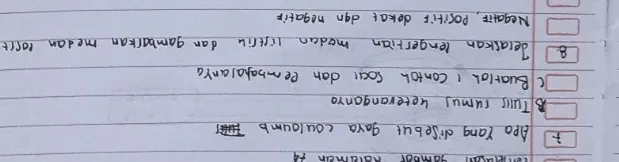 gambar halaman 14
7 Apa yang disebut gaya coulounb
B Tulis rumus keterangannya
C Buatlah 1 contoh soal dan pembahasannya
8 Jelaskan pengertian medan listrik dan gambarkan medan
Negatif, positif dekat dgn negatif